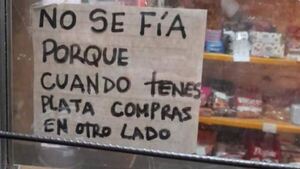 NO SE FÍA
PORQUE
CUANDO TENES
PLATA COMPRAS
EN OTRO LADO